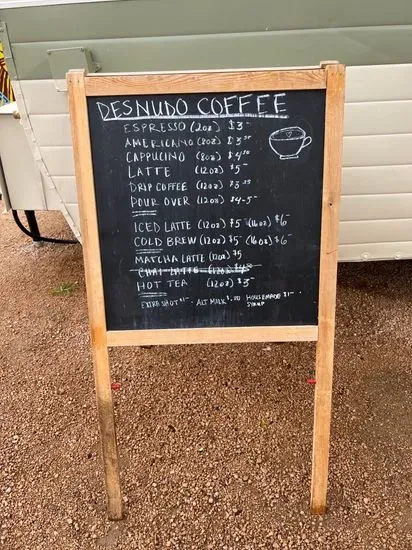 DESNUDO COFFEE
ESPRESSO (2oz) $3-
AMERICANO (8oz) $3.50
CAPPUCINO (8oz) $4.50
LATTE (12oz) $5-
DRIP COFFEE (12oz) $3.25
POUR OVER (12oz) $4-5-
ICED LATTE (12oz) $5- (16oz) $6-
COLD BREW (12oz) $5- (16oz) $6-
MATCHA LATTE (12oz) $5
CHAI LATTE (12oz) $4.50
HOT TEA (12oz) $3-
EXTRA SHOT $1-. ALT MILK HOUSEMADE $1-.
SYRUP